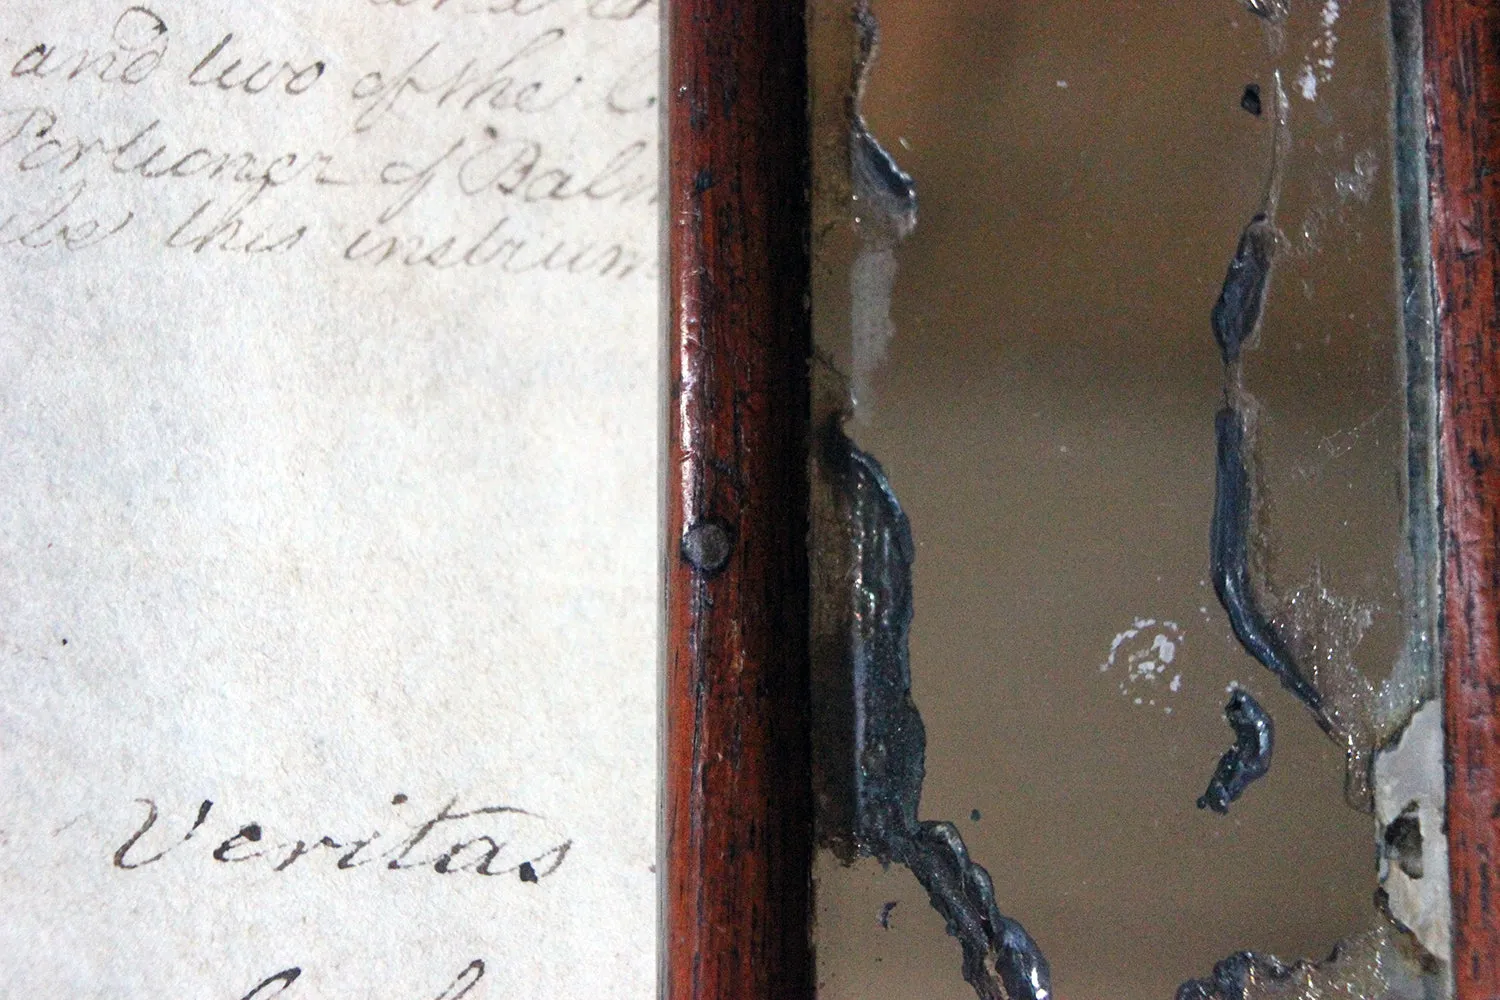 and two of the
Portioner of Balm
be this instrum
Veritas